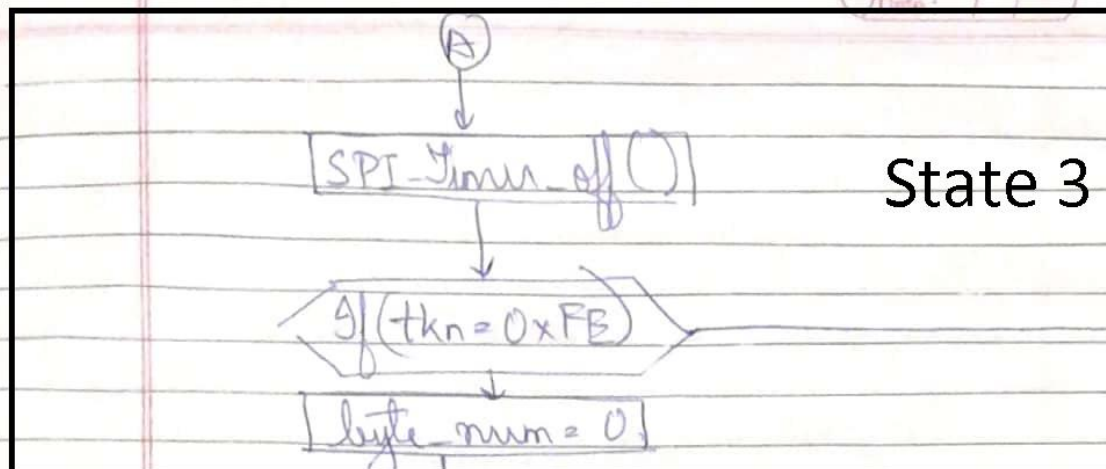 A
SPI_Timer_off()
State 3
If(tkn = 0xFE)
byte_num = 0